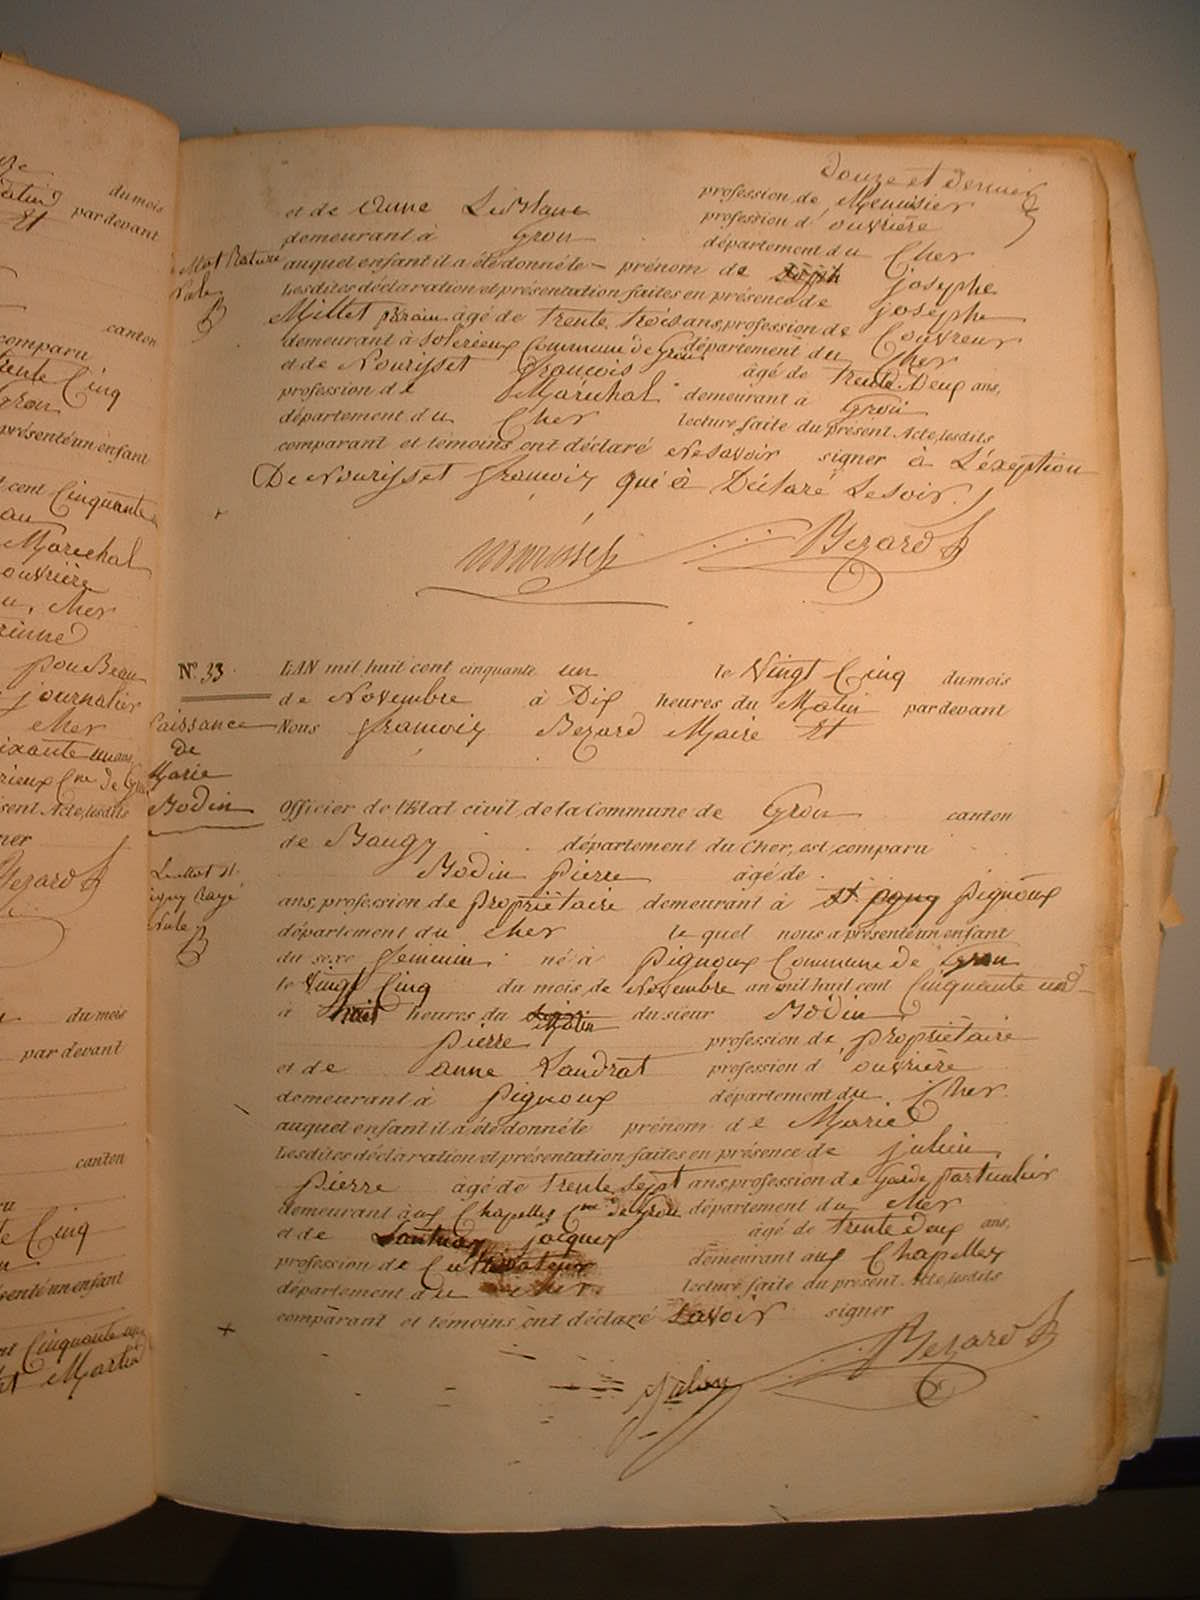 douze et dernier
profession de Menuisier
et de Anne Leblanc profession d'ouvrière
demeurant à Gron département du Cher
Mot Rature auquel enfant il a été donné le prénom de Joseph josephe
Nule Lesdites déclaration et présentation faites en présence de joséphe
Millet âgé de trente trois ans, profession de Couvreur
demeurant à Solérieux Commune de Gron département du Cher
et de Nourisset françois âgé de trente Deux ans,
profession de Maréchal demeurant à Gron
département du Cher lecture faite du présent Acte, lesdits
comparant et témoins ont déclaré Ne savoir signer à L'éxeption
De Nourisset françois qui à Déclaré Lesavoir
Bezard
Nº 33 L'AN mil huit cent cinquante un le Vingt Cinq du mois
de Novembre à Dix heures du Matin par devant
Naissance Nous françois Bezard Maire Et
de
Marie
Bodin Officier de l'Etat civil, de la Commune de Gron canton
de Baugy département du Cher, est comparu
Le Mot St Bodin Pierre âgé de
pigny Rayé ans, profession de Propriétaire demeurant à St pigny Pignoux
Nule département du Cher lequel nous a présenté un enfant
du sexe féminin né à Pignoux Commune de Gron
le Vingt Cinq du mois de Novembre an mil huit cent Cinquante un
à huit heures du Matin du sieur Bodin
Pierre profession de propriétaire
et de anne Laudrat profession d'ouvrière
demeurant à Pignoux département du Cher
auquel enfant il a été donné le prénom de Marie
Lesdites déclaration et présentation faites en présence de julien
Pierre âgé de trente Sept ans, profession de Garde Particulier
demeurant aux Chapelles Cne de Gron département du Cher
et de jacques âgé de trente Deux ans,
profession de Cultivateur demeurant aux Chapelles
département du Cher lecture faite du présent Acte, lesdits
comparant et témoins ont déclaré Savoir signer
Bezard
Julien
du mois
par devant
Et
canton
comparu
trente Cinq
Gron
présenté un enfant
cent Cinquante
Maréchal
ouvrière
Cher
journalier
Cher
Acte, lesdits
Bezard
du mois
par devant
canton
Cinq
présenté un enfant
Cinquante un
Martin